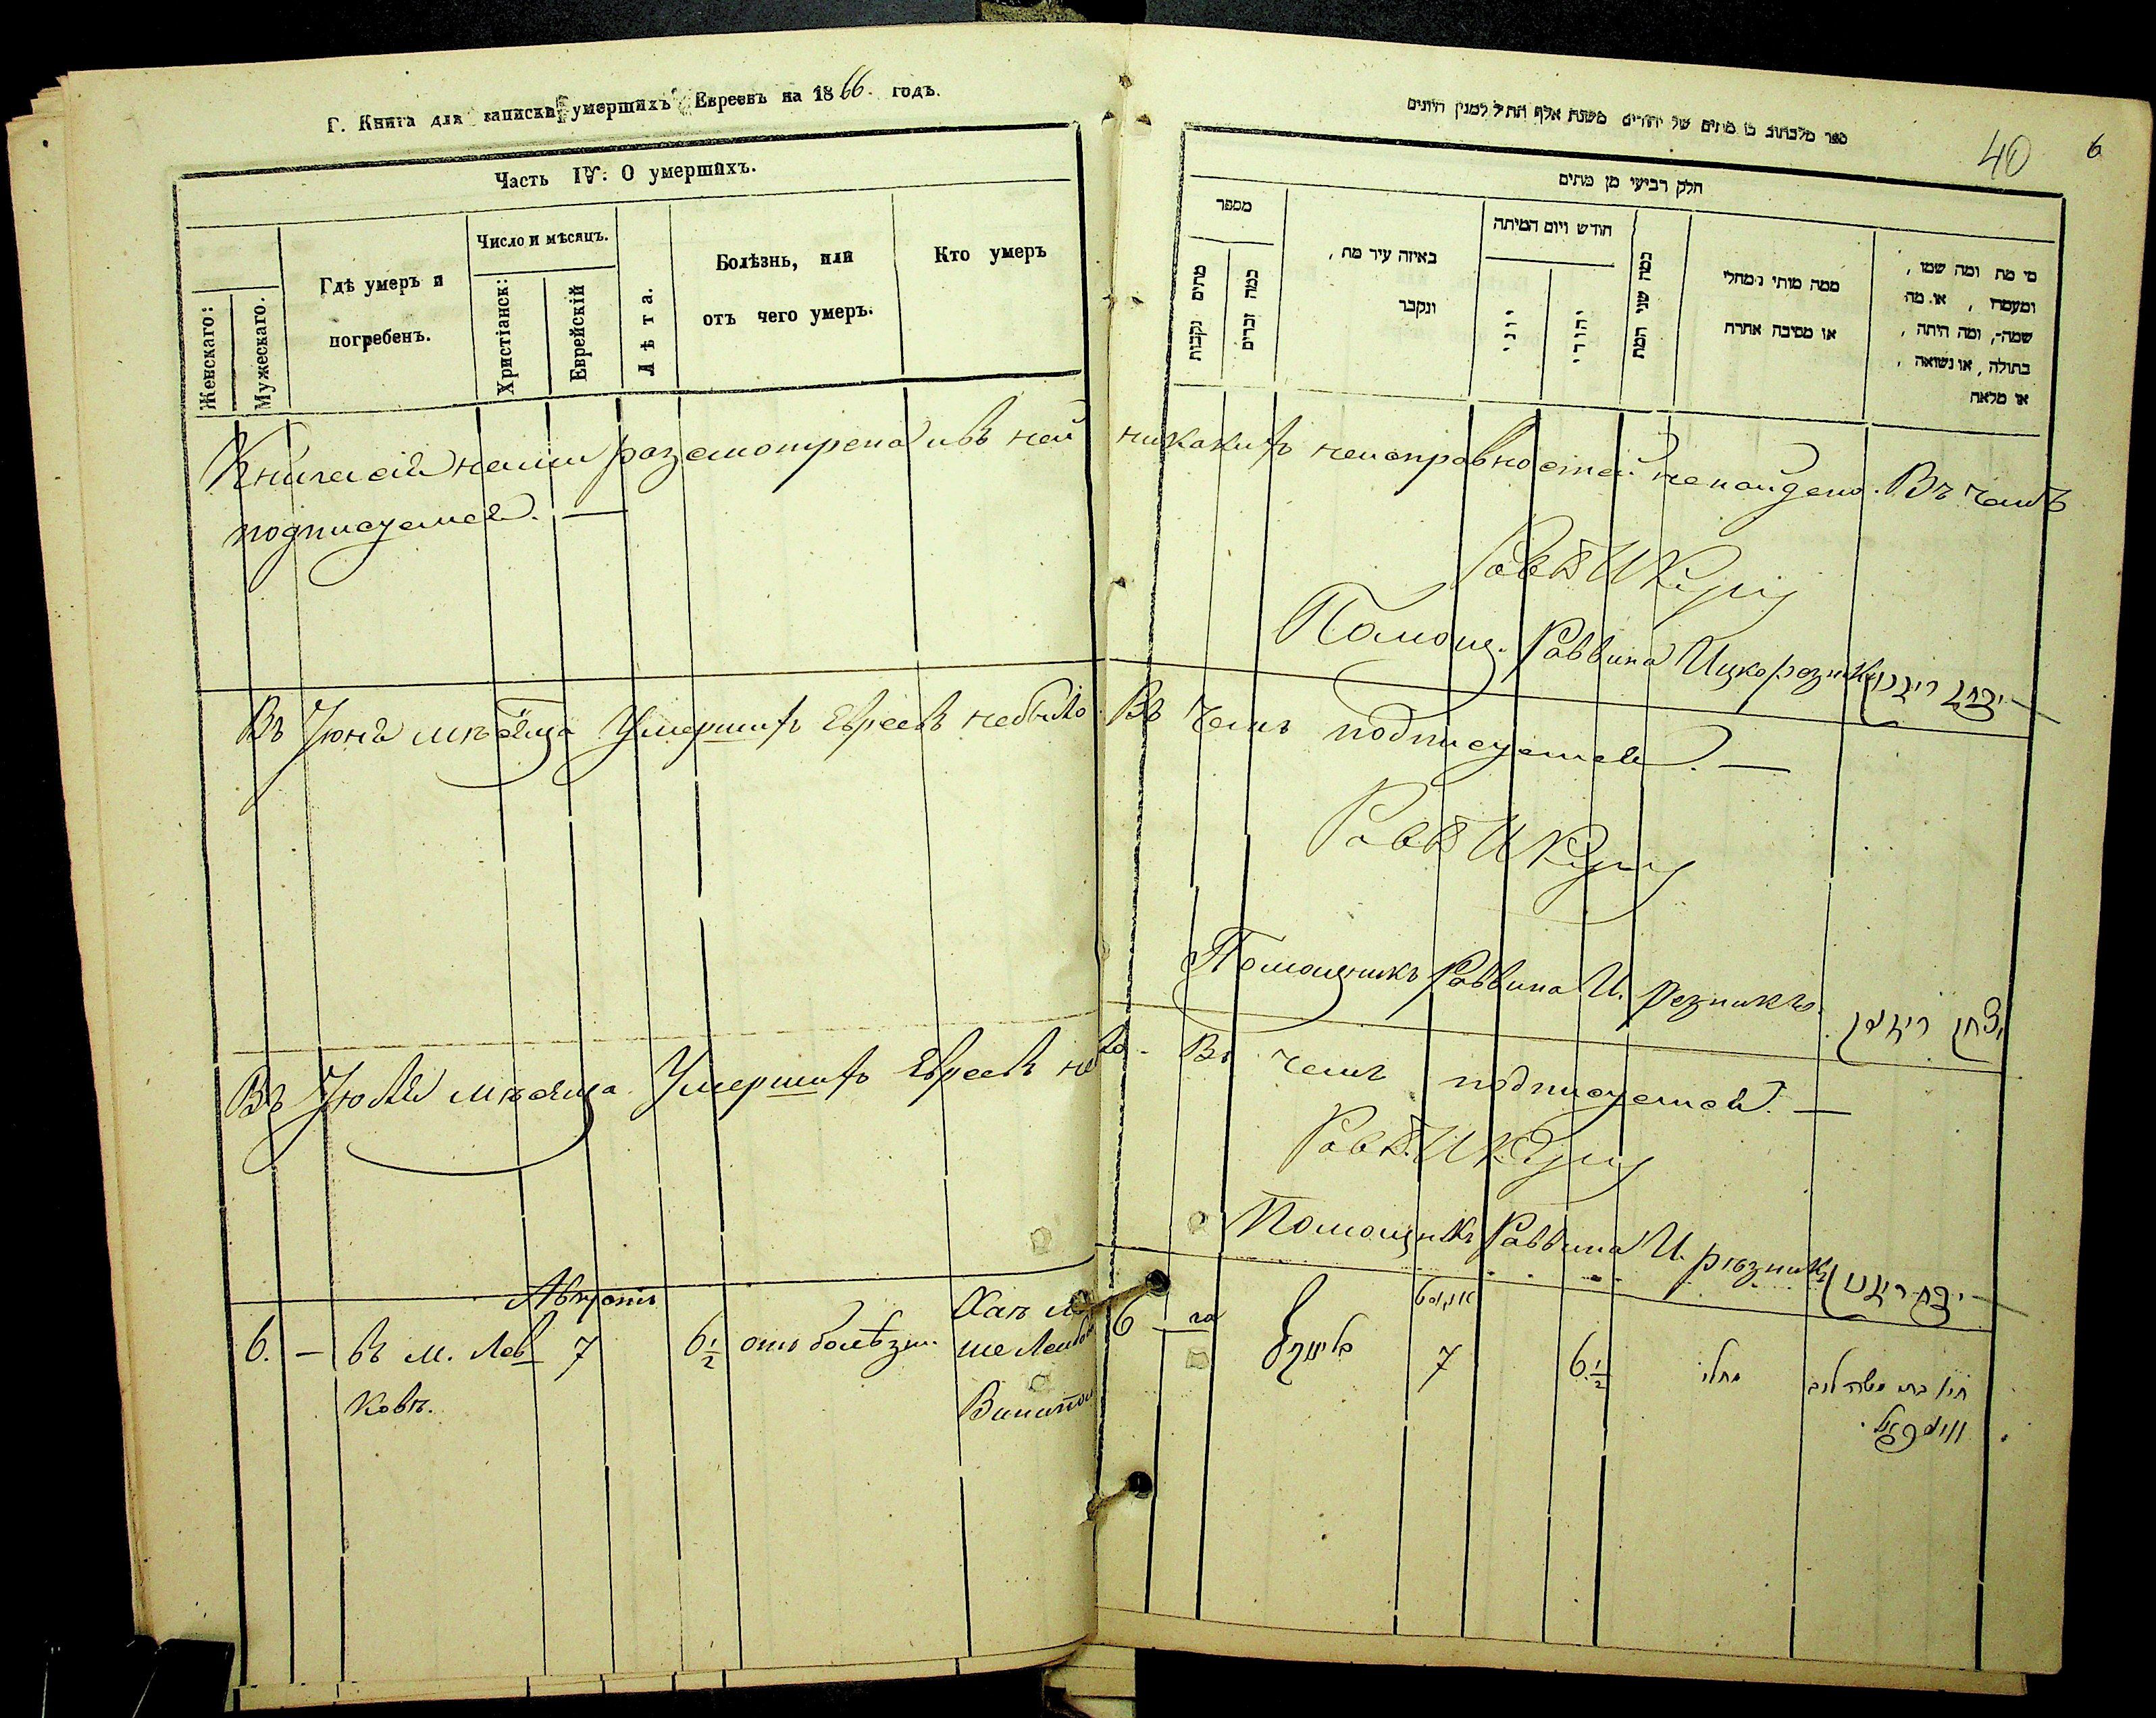 Г. Книга для записки умершихъ Евреевъ на 1866 годъ.
Часть IV. О умершихъ.
Женскаго:
Мужескаго.
Гдѣ умеръ и
погребенъ.
Число и мѣсяцъ.
Христіанск:
Еврейскій
Лѣта.
Болѣзнь, или
отъ чего умеръ.
Кто умеръ
ספר מלכתוב בו מתים של יהודים משנת אלף תתיל למנין היונים
40 6
חלק רביעי מן מתים
מספר
מתים נקבות
כמה זכרים
באיזה עיר מת,
ונקבר
חודש ויום המיתה
יוני
יהודי
כמה שני המת
ממה מותי ממחלי
או מסיבה אחרת
מי מת ומה שמו,
ומעמדו, או מה
שמה, ומה היתה,
בתולה, או נשואה,
או מלאה
Книга сія нами разсмотрена и въ ней никакихъ неисправностей не найдено. Въ чемъ
подписуемся. —
Равв И
Помощ. Раввина Ицко Резникъ
Въ Іюнѣ мѣсяца Умершихъ Евреевъ не было. Въ чемъ подписуемся. —
Равв И
Помощникъ Раввина И. Резникъ.
Въ Іюлѣ мѣсяца Умершихъ Евреевъ не Въ чемъ подписуемся. —
Равв. И
Помощникъ Раввина И. Резникъ
Августъ
6. — въ м. Лев 7 6½ отъ болѣзни. ше Лейбов
ковъ.
6 — 7 6½ מחלי חי' בת משה ליב